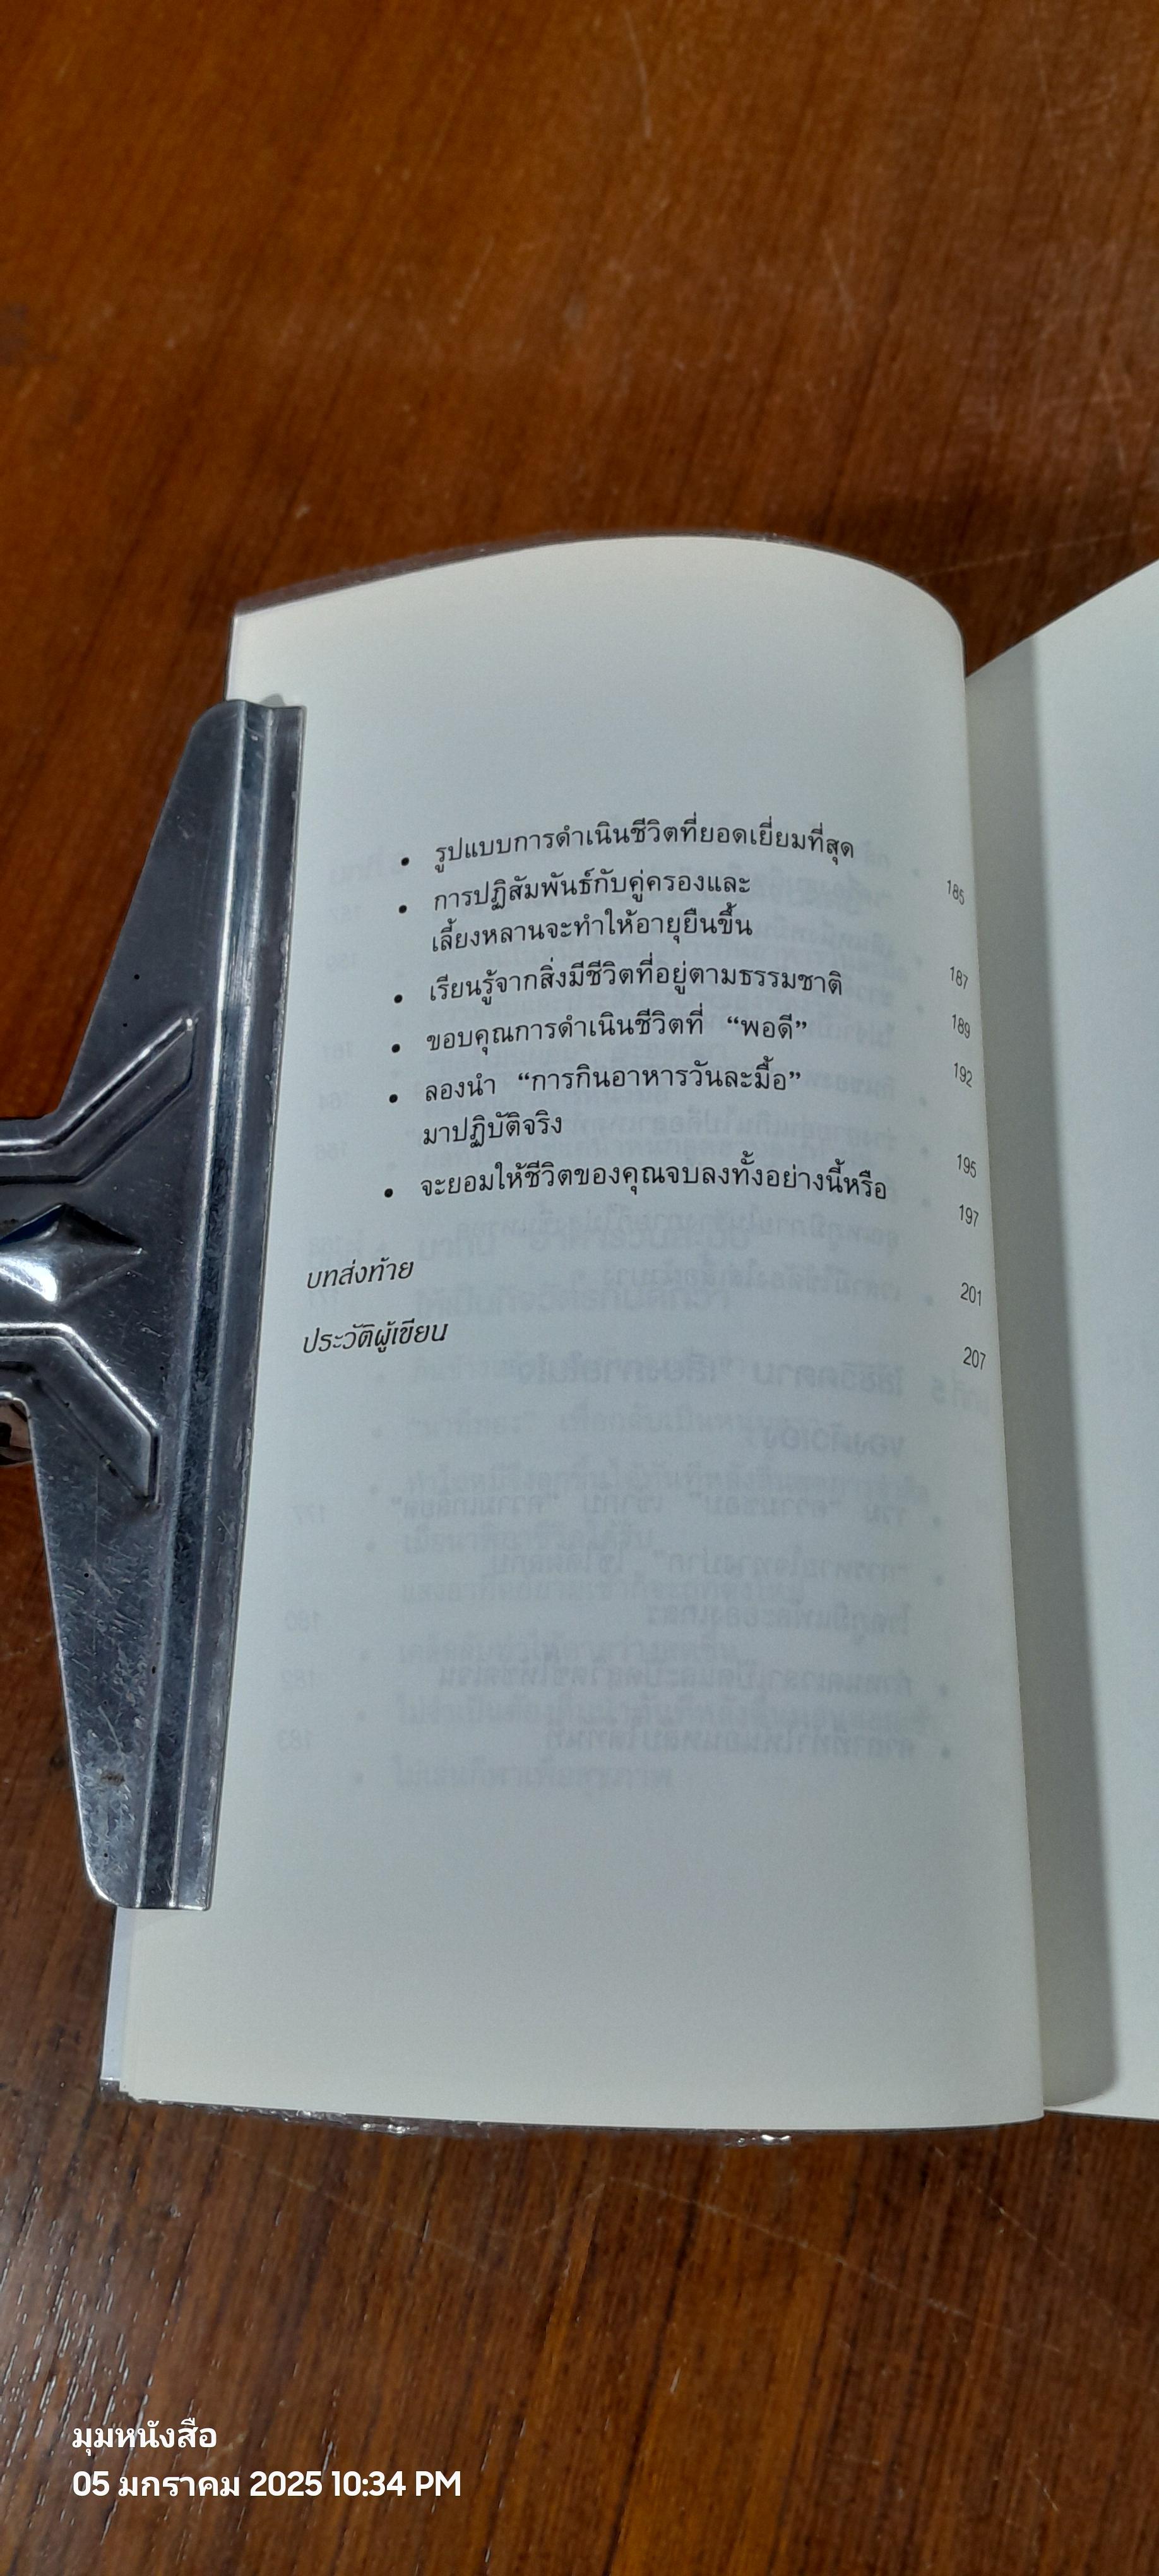 • รูปแบบการดำเนินชีวิตที่ยอดเยี่ยมที่สุด 185
• การปฏิสัมพันธ์กับคู่ครองและ
เลี้ยงหลานจะทำให้อายุยืนขึ้น 187
• เรียนรู้จากสิ่งมีชีวิตที่อยู่ตามธรรมชาติ 189
• ขอบคุณการดำเนินชีวิตที่ “พอดี” 192
• ลองนำ “การกินอาหารวันละมื้อ”
มาปฏิบัติจริง 195
• จะยอมให้ชีวิตของคุณจบลงทั้งอย่างนี้หรือ 197
บทส่งท้าย 201
ประวัติผู้เขียน 207
มุมหนังสือ
05 มกราคม 2025 10:34 PM